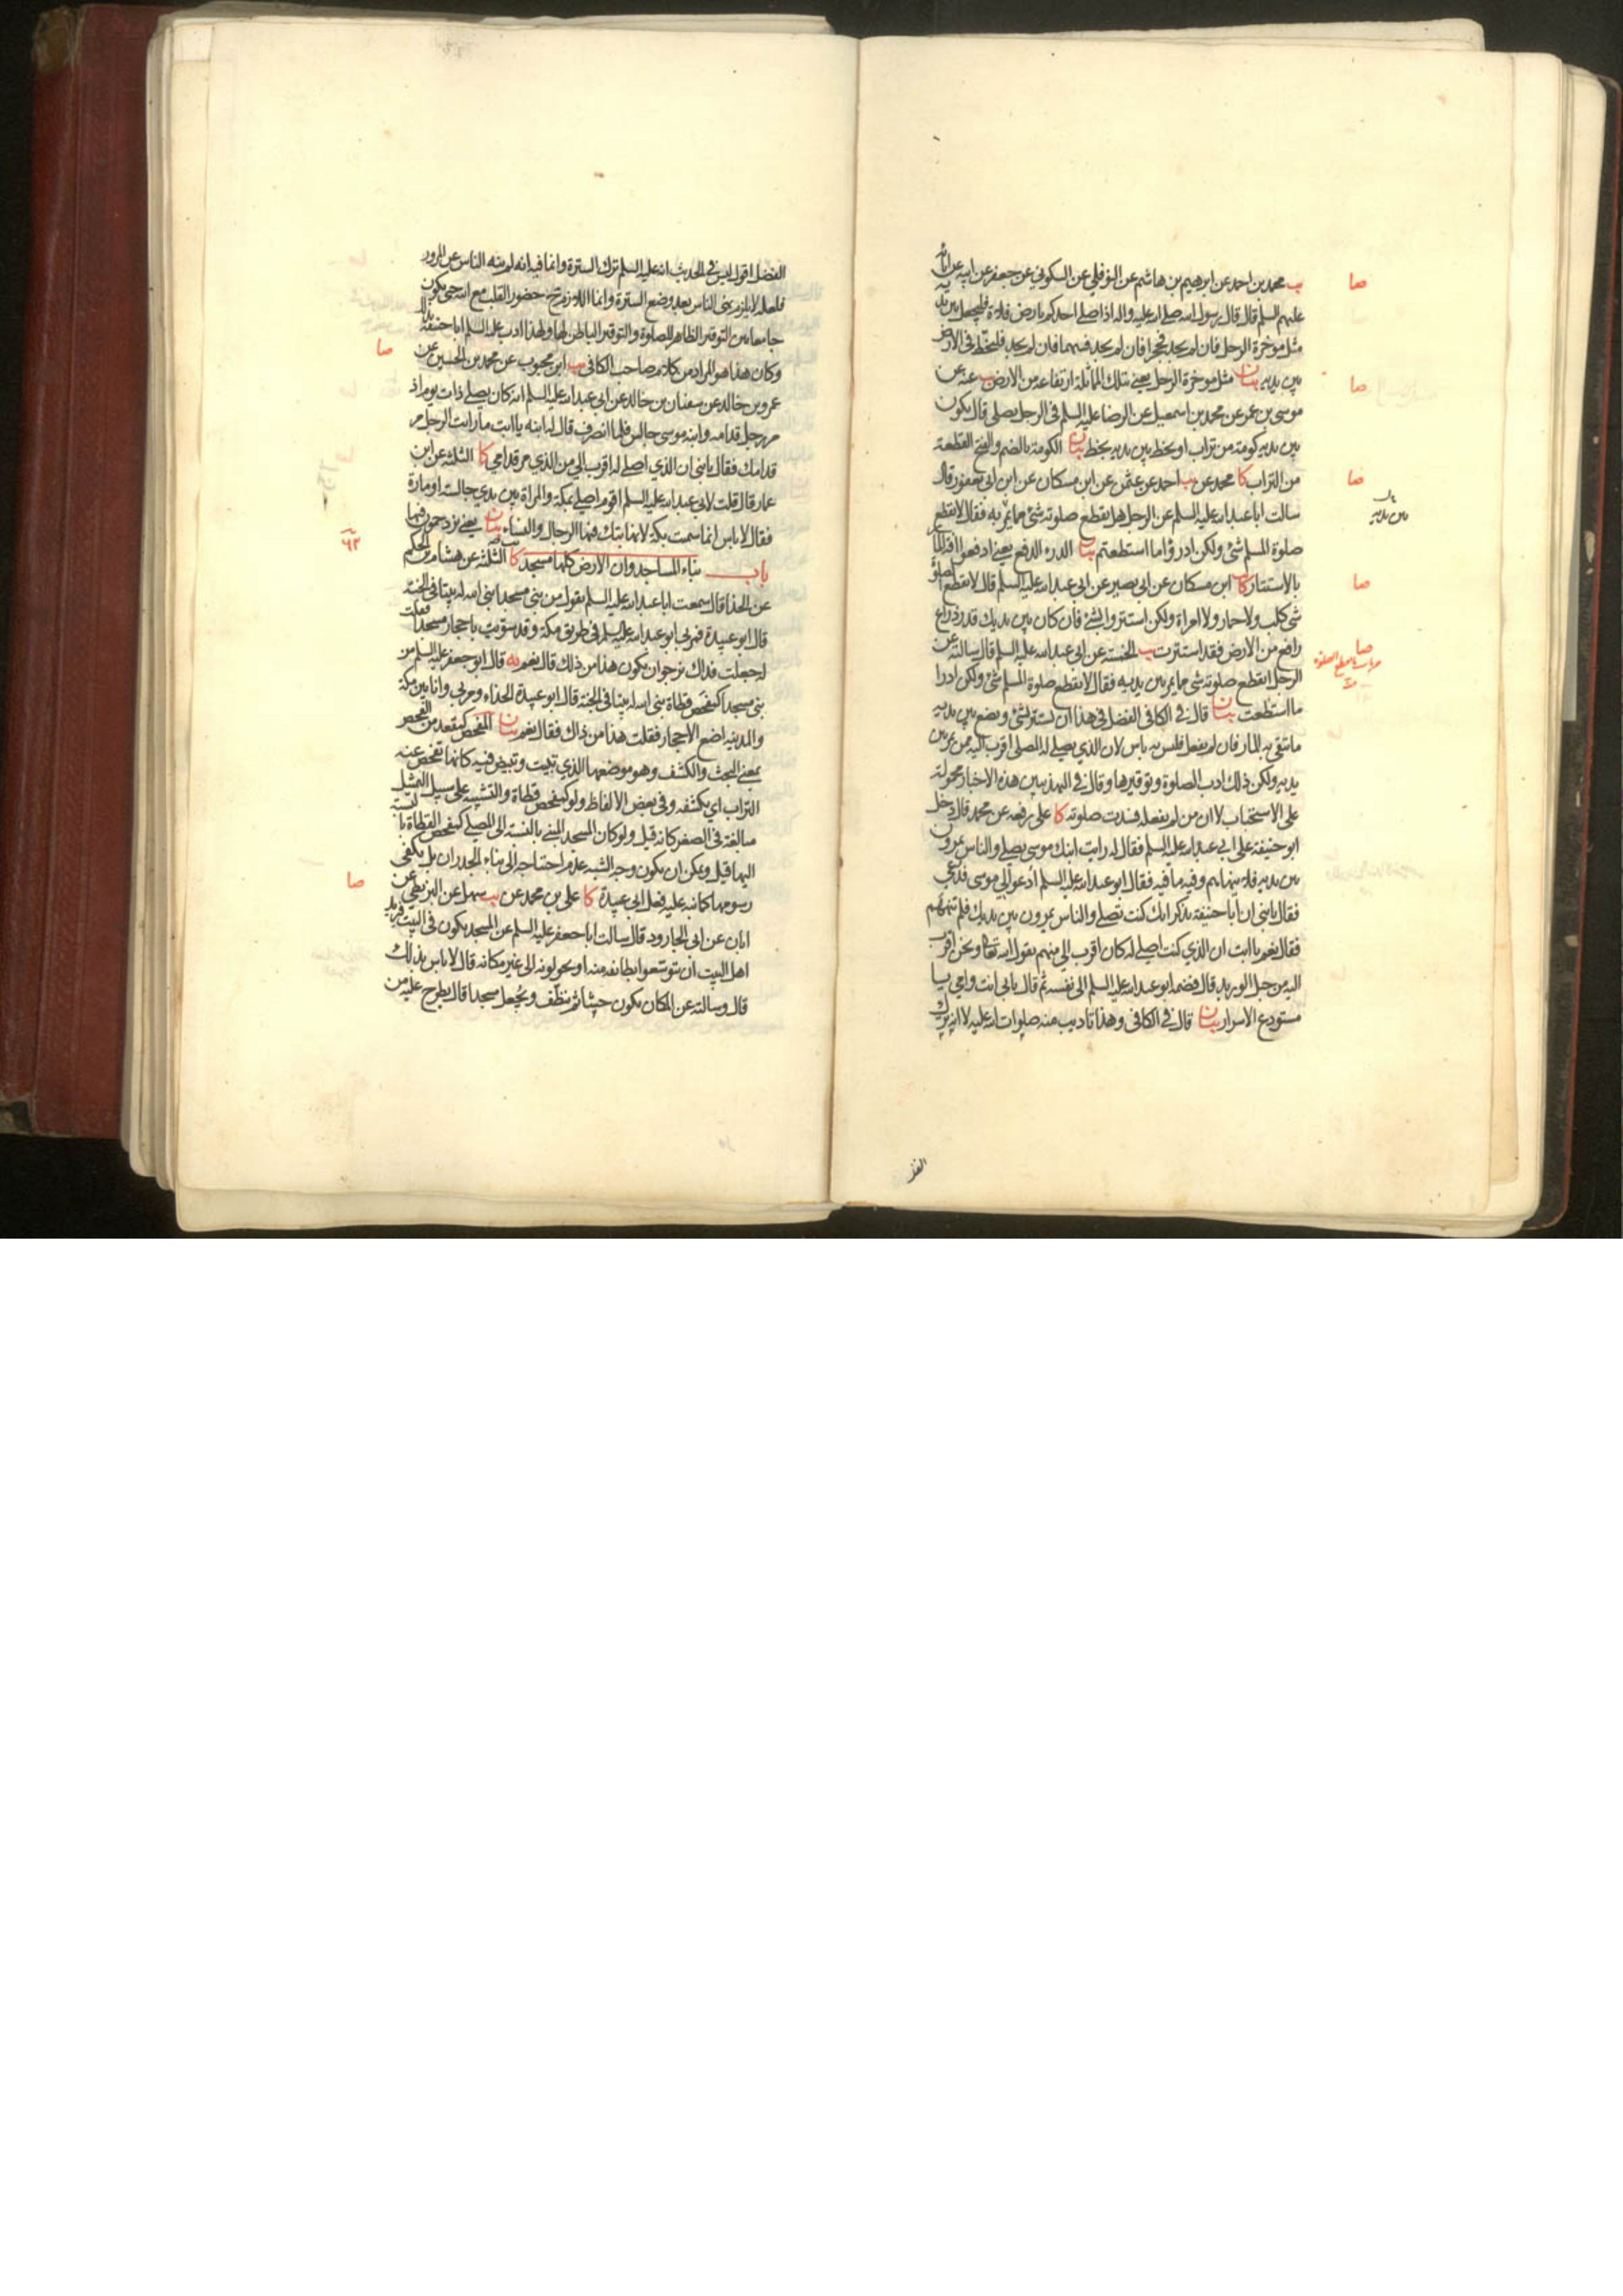 يب محمد بن احمد عن ابرهيم بن هاشم عن النوفلي عن السكوني عن جعفر عن ابيه عن ابائه
عليهم السلم قال قال رسول الله صلى الله عليه واله اذا صلى احدكم بارض فلاة فليجعل بين يديه
مثل موخرة الرحل فان لم يجد فحجرا فان لم يجد فسهما فان لم يجد فليخط في الارض
بين يديه بيان مثل موخرة الرحل يعني بتلك المماثلة ارتفاعه من الارض يب عنه عن
موسى بن عمر عن محمد بن اسمعيل عن الرضا عليه السلم في الرجل يصلي قال يكون
بين يديه كومة من تراب او يخط بين يديه بخط بيان الكومة بالضم والفتح القطعة
من التراب كا محمد عن يب احمد عن عثمن عن ابن مسكان عن ابن ابي يعفور قال
سالت ابا عبد الله عليه السلم عن الرجل هل يقطع صلوته شئ مما يمر به فقال لا يقطع
صلوة المسلم شئ ولكن ادرؤا ما استطعتم بيان الدرء الدفع يعني ادفعوا
بالاستتار كا ابن مسكان عن ابي بصير عن ابي عبد الله عليه السلم قال لا يقطع الصلوة
شئ كلب ولا حمار ولا امراة ولكن استتروا بشئ فان كان بين يديك قدر ذراع
رافع من الارض فقد استترت يب الخمسة عن ابي عبد الله عليه السلم قال سالته عن
الرجل ايقطع صلوته شئ مما يمر بين يديه فقال لا يقطع صلوة المسلم شئ ولكن ادرا
ما استطعت بيان قال في الكافي الفضل في هذا ان تستتر بشئ وتضع بين يديه
ما تتقي به المار فان لم يفعل فليس به باس لان الذي يصلي له المصلي اقرب اليه ممن يمر بين
يديه ولكن ذلك ادب الصلوة وتوقيرها وقال في التهذيبين هذه الاخبار محمولة
على الاستحباب لا ان من لم يفعله فسدت صلوته كا علي رفعه عن محمد قال دخل
ابو حنيفة على ابي عبد الله عليه السلم فقال له رايت ابنك موسى يصلي والناس يمرون
بين يديه فلا ينهاهم وفيه ما فيه فقال ابو عبد الله عليه السلم ادعوا لي موسى فدعي
فقال يا بني ان ابا حنيفة يذكر انك كنت تصلي والناس يمرون بين يديك فلم تنههم
فقال نعم يا ابت ان الذي كنت اصلي له كان اقرب الي منهم يقول الله تعالى ونحن اقرب
اليه من حبل الوريد قال فضمه ابو عبد الله عليه السلم الى نفسه ثم قال بابي انت وامي يا
مستودع الاسرار بيان قال في الكافي وهذا تاديب منه صلوات الله عليه لا انه ترك
صا
صا
صا
بين يديه
صا
صا
الفضل
الفضل اقول ليس في الحديث انه عليه السلم ترك السترة وانما فيه انه لم ينه الناس عن المرور
فلعله لا يلزم نهي الناس بعد وضع السترة وانما اللازم حضور القلب مع الله حتى يكون
جامعا بين التوقير الظاهر للصلوة والتوقير الباطن لها ولهذا ادب عليه السلم ابا حنيفة
وكان هذا هو المراد من كلام صاحب الكافي يب ابن محبوب عن محمد بن الحسين عن
عمرو بن خالد عن سفيان بن خالد عن ابي عبد الله عليه السلم انه كان يصلي ذات يوم اذ
مر رجل قدامه وابنه موسى جالس فلما انصرف قال له ابنه يا ابت ما رايت الرجل مر
قدامك فقال يا بني ان الذي اصلي له اقرب الي من الذي مر قدامي كا الثلثة عن ابن
عمار قال قلت لابي عبد الله عليه السلم اقوم اصلي بمكة والمراة بين يدي جالسة او مارة
فقال لا باس انما سميت بكة لانها يبتك فيها الرجال والنساء بيان يعني يزدحمون فيها
باب بناء المساجد وان الارض كلها مسجد كا الثلثة عن هشام بن الحكم
عن الحذا قال سمعت ابا عبد الله عليه السلم يقول من بنى مسجدا بنى الله له بيتا في الجنة
قال ابو عبيدة فمر بي ابو عبد الله عليه السلم في طريق مكة وقد سويت باحجار مسجدا فقلت
له جعلت فداك نرجو ان يكون هذا من ذلك قال نعم يه قال ابو جعفر عليه السلم من
بنى مسجدا كمفحص قطاة بنى الله له بيتا في الجنة قال ابو عبيدة الحذاء ومر بي وانا بين مكة
والمدينه اضع الاحجار فقلت هذا من ذاك فقال نعم بيان المفحص كمقعد من الفحص
بمعنى البحث والكشف وهو موضعها الذي تبيت وتبيض فيه كانها تفحص عنه
التراب اي يكشفه وفي بعض الالفاظ ولو كمفحص قطاة والتشبيه على سبيل التمثيل
مبالغة في الصغر كانه قيل ولو كان المسجد المبني بالنسبة الى المصلي كمفحص القطاة بالنسبة
اليها قيل ويمكن ان يكون وجه الشبه عدم احتياجه الى بناء الجدران بل يكفي
رسومها كما نبه عليه فعل ابي عبيدة كا علي بن محمد عن يب سهل عن البزنطي عن
ابان عن ابي الجارود قال سالت ابا جعفر عليه السلم عن المسجد يكون في البيت فيريد
اهل البيت ان يتوسعوا بطائفه منه او يحولونه الى غير مكانه قال لا باس بذلك
قال وسالته عن المكان يكون حشا ثم ينظف ويجعل مسجدا قال يطرح عليه من
صا
٦٣
صا